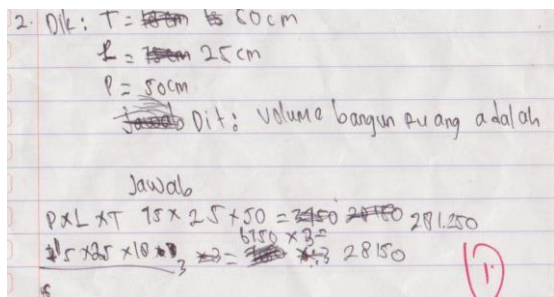 2. Dik: T = 50cm
L = 25cm
P = 50cm
Dit: Volume bangun ruang adalah
Jawab
PXL XT 75 x 25 x 50 = 281.250
x 25 x 10 = 28150